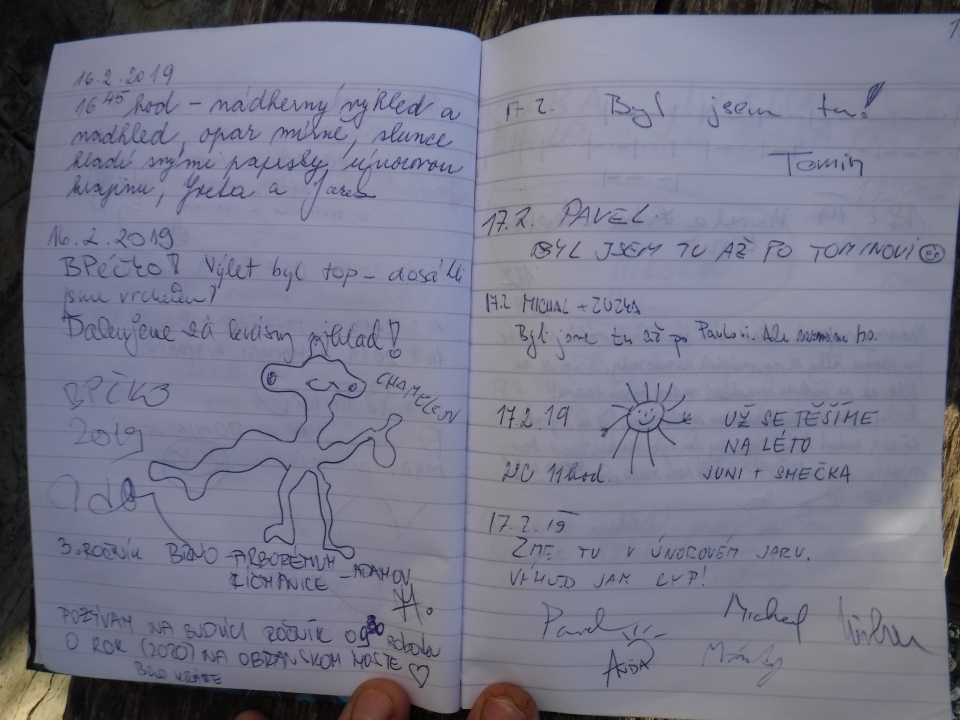 16.2.2019
16 45 hod – nádherný výhled a
nadhled, opar mírně, slunce
hladí svými paprsky únorovou
krajinu, a
16.2.2019
BPéčko! Výlet byl top – dosáhli
jsme vrcholení!
Děkujeme za krásný
BPČKO
2019
CHAMELEON
3. ROČNÍK BRNO – ARBORETUM
ŘÍČMANICE – ADAMOV
POZÝVAM NA BUDÚCI ROČNÍK O 9 30 sobotu
O ROK (2020) NA OBRANSKOM MOSTE ♡
17.2. Byl jsem tu!
Tomin
17.2. PAVEL
BYL JSEM TU AŽ PO TOMINOVI ☺
17.2. MICHAL + ZUZKA
Byli jsme tu až po Pavlovi. Ale neznáme ho.
17.2.19 UŽ SE TĚŠÍME
NA LÉTO
11 hod. JUNI + SMEČKA
17.2.19
ZME TU V ÚNOROVÉM JARU.
VÝHLED JAK CYP!
Pavel Michal
ANDA